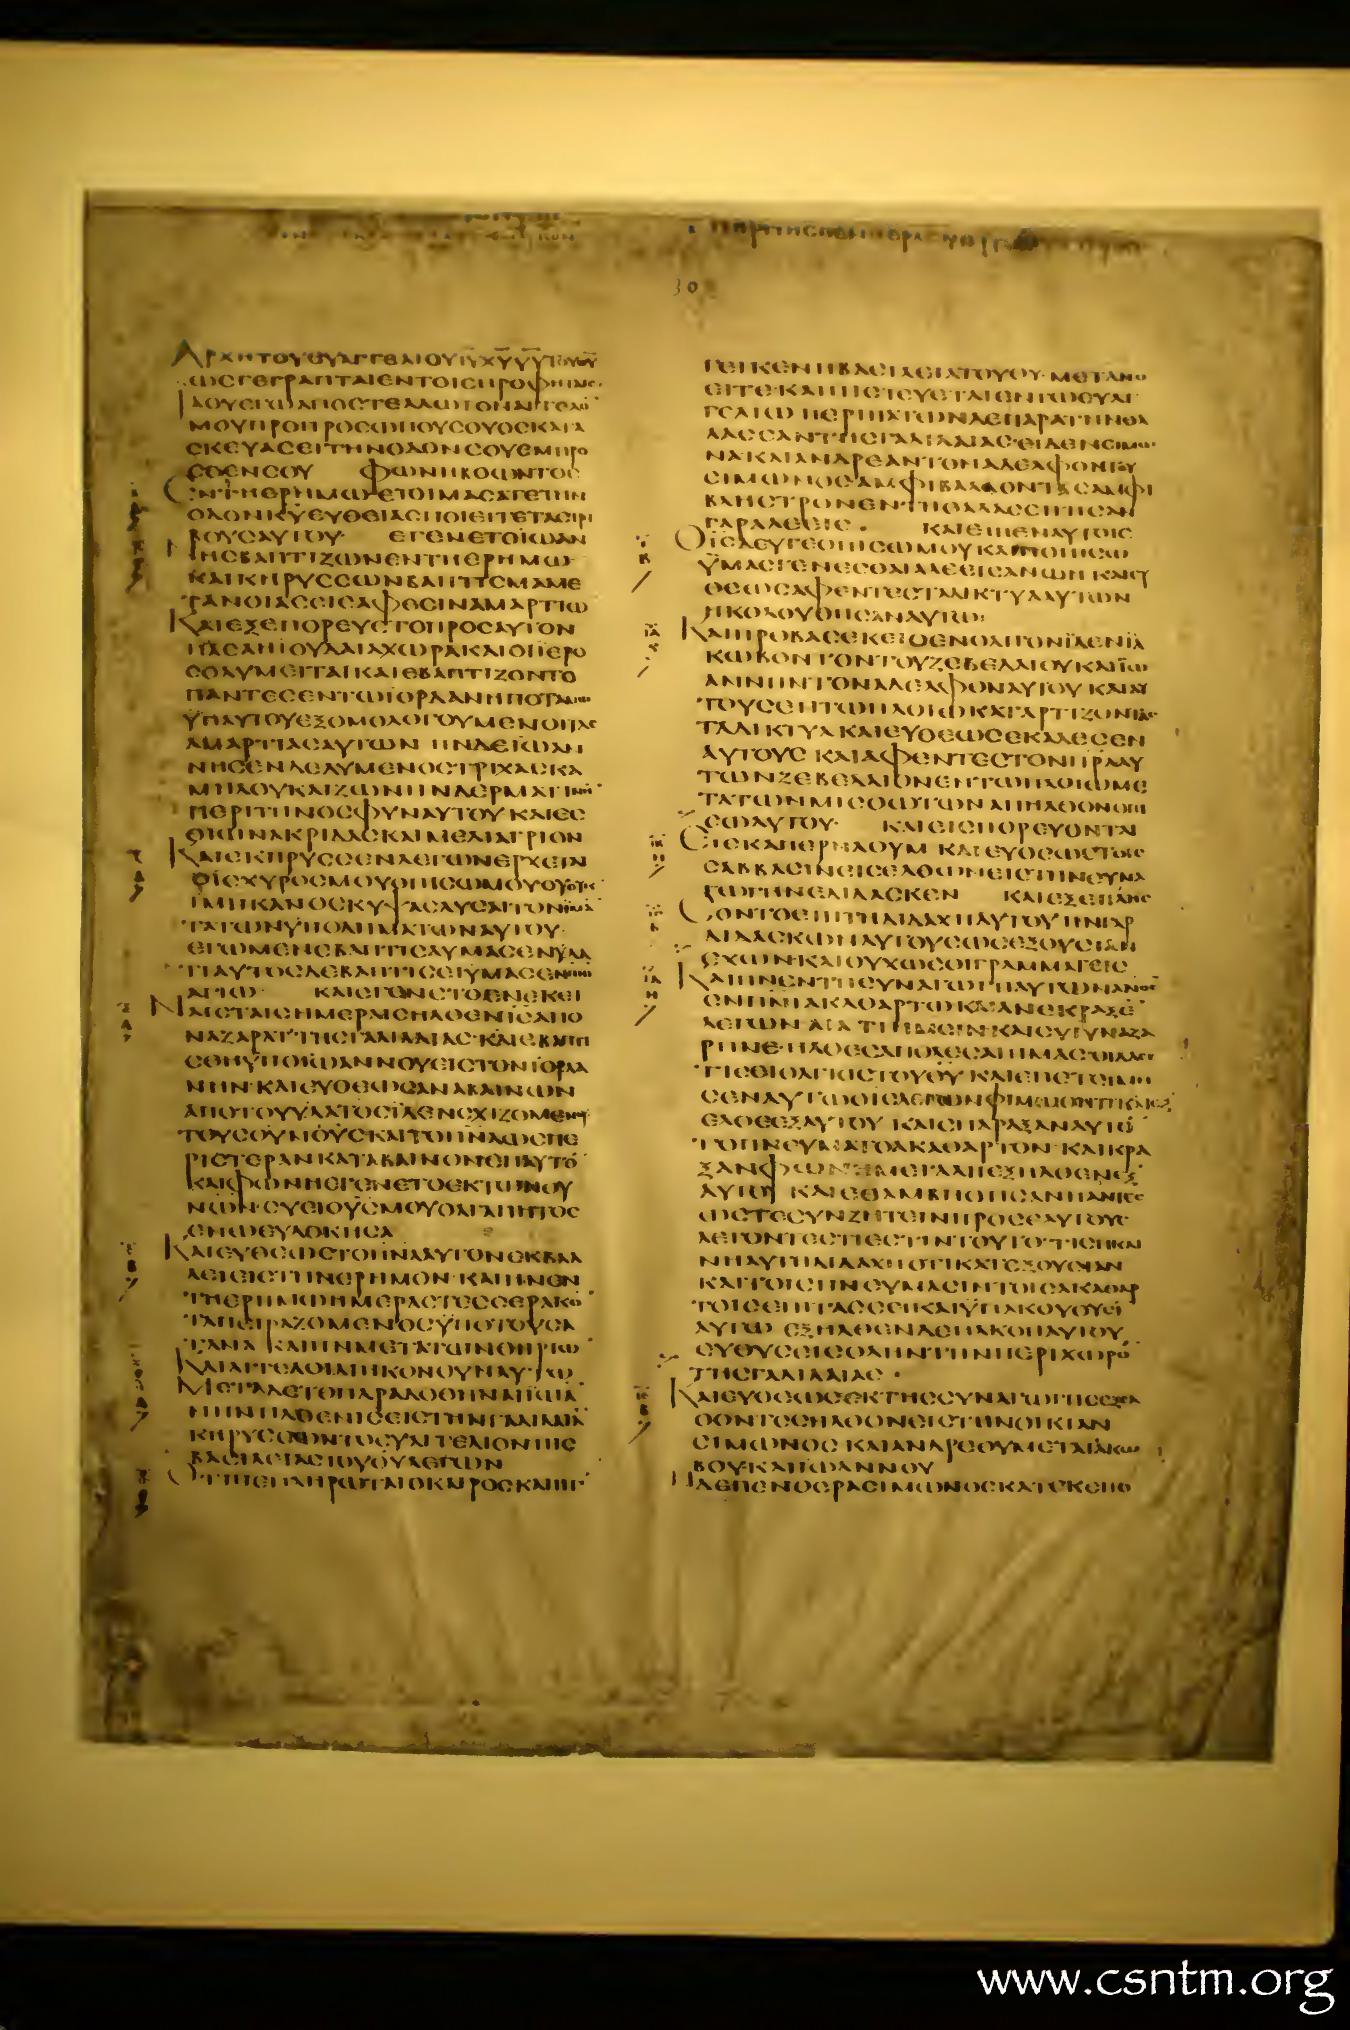 30
ΑΡΧΗΤΟΥΕΥΑΓΓΕΛΙΟΥΙΥΧΥΥΥΤΟΥΘΥ
ΩΣΓΕΓΡΑΠΤΑΙΕΝΤΟΙΣΠΡΟΦΗΤΑΙΣ·
ΙΔΟΥΕΓΩΑΠΟΣΤΕΛΛΩΤΟΝΑΓΓΕΛΟ
ΜΟΥΠΡΟΠΡΟΣΩΠΟΥΣΟΥΟΣΚΑΤΑ
ΣΚΕΥΑΣΕΙΤΗΝΟΔΟΝΣΟΥΕΜΠΡΟ
ΣΘΕΝΣΟΥ ΦΩΝΗΒΟΩΝΤΟΣ
ΕΝΤΗΕΡΗΜΩΕΤΟΙΜΑΣΑΤΕΤΗΝ
ΟΔΟΝΚΥΕΥΘΕΙΑΣΠΟΙΕΙΤΕΤΑΣΤΡΙ
ΒΟΥΣΑΥΤΟΥ· ΕΓΕΝΕΤΟΙΩΑΝ
ΝΗΣΒΑΠΤΙΖΩΝΕΝΤΗΕΡΗΜΩ
ΚΑΙΚΗΡΥΣΣΩΝΒΑΠΤΙΣΜΑΜΕ
ΤΑΝΟΙΑΣΕΙΣΑΦΕΣΙΝΑΜΑΡΤΙΩ
ΚΑΙΕΞΕΠΟΡΕΥΕΤΟΠΡΟΣΑΥΤΟΝ
ΠΑΣΑΗΙΟΥΔΑΙΑΧΩΡΑΚΑΙΟΙΙΕΡΟ
ΣΟΛΥΜΕΙΤΑΙΚΑΙΕΒΑΠΤΙΖΟΝΤΟ
ΠΑΝΤΕΣΕΝΤΩΙΟΡΔΑΝΗΠΟΤΑΜΩ
ΥΠΑΥΤΟΥΕΞΟΜΟΛΟΓΟΥΜΕΝΟΙΤΑΣ
ΑΜΑΡΤΙΑΣΑΥΤΩΝ ΗΝΔΕΙΩΑΝ
ΝΗΣΕΝΔΕΔΥΜΕΝΟΣΤΡΙΧΑΣΚΑ
ΜΗΛΟΥΚΑΙΖΩΝΗΝΔΕΡΜΑΤΙΝΗ
ΠΕΡΙΤΗΝΟΣΦΥΝΑΥΤΟΥΚΑΙΕΣ
ΘΙΩΝΑΚΡΙΔΑΣΚΑΙΜΕΛΙΑΓΡΙΟΝ
ΚΑΙΕΚΗΡΥΣΣΕΝΛΕΓΩΝΕΡΧΕΤΑΙ
ΟΙΣΧΥΡΟΣΜΟΥΟΠΙΣΩΜΟΥΟΥΟΥΚ
ΙΜΙΙΚΑΝΟΣΚΥΨΑΣΛΥΣΑΙΤΟΝΙΜΑ
ΤΑΤΩΝΥΠΟΔΗΜΑΤΩΝΑΥΤΟΥ·
ΕΓΩΜΕΝΕΒΑΠΤΙΣΑΥΜΑΣΕΝΥΔΑ
ΤΙΑΥΤΟΣΔΕΒΑΠΤΙΣΕΙΥΜΑΣΕΝΠΝΙ
ΑΓΙΩ· ΚΑΙΕΓΕΝΕΤΟΕΝΕΚΕΙ
ΝΑΙΣΤΑΙΣΗΜΕΡΑΙΣΗΛΘΕΝΙΣΑΠΟ
ΝΑΖΑΡΑΤΤΗΣΓΑΛΙΛΑΙΑΣ·ΚΑΙΕΒΑΠΤΙ
ΣΘΗΥΠΟΙΩΑΝΝΟΥΕΙΣΤΟΝΙΟΡΔΑ
ΝΗΝ·ΚΑΙΕΥΘΕΩΣΑΝΑΒΑΙΝΩΝ
ΑΠΟΤΟΥΥΔΑΤΟΣΙΔΕΝΣΧΙΖΟΜΕΝΟΥΣ
ΤΟΥΣΟΥΝΟΥΣΚΑΙΤΟΠΝΑΩΣΠΕ
ΡΙΣΤΕΡΑΝΚΑΤΑΒΑΙΝΟΝΕΠΑΥΤΟ
ΚΑΙΦΩΝΗΕΓΕΝΕΤΟΕΚΤΩΝΟΥ
ΝΩΝ·ΣΥΕΙΟΥΣΜΟΥΟΑΓΑΠΗΤΟΣ
ΕΝΩΕΥΔΟΚΗΣΑ
ΚΑΙΕΥΘΕΩΣΤΟΠΝΑΑΥΤΟΝΕΚΒΑΛ
ΛΕΙΕΙΣΤΗΝΕΡΗΜΟΝ·ΚΑΙΗΝΕΝ
ΤΗΕΡΗΜΩΗΜΕΡΑΣΤΕΣΣΕΡΑΚΟ
ΤΑΠΕΙΡΑΖΟΜΕΝΟΣΥΠΟΤΟΥΣΑ
ΤΑΝΑ ΚΑΙΗΝΜΕΤΑΤΩΝΘΗΡΙΩ
ΚΑΙΑΓΓΕΛΟΙΔΙΗΚΟΝΟΥΝΑΥΤΩ
ΜΕΤΑΔΕΤΟΠΑΡΑΔΟΘΗΝΑΙΙΩΑ
ΝΗΝΗΛΘΕΝΙΣΕΙΣΤΗΝΓΑΛΙΛΑΙΑ
ΚΗΡΥΣΣΩΝΤΟΕΥΑΓΓΕΛΙΟΝΤΗΣ
ΒΑΣΙΛΕΙΑΣΤΟΥΘΥΛΕΓΩΝ
ΟΤΙΠΕΠΛΗΡΩΤΑΙΟΚΑΙΡΟΣΚΑΙΗΓ
ΓΕΙΚΕΝΗΒΑΣΙΛΕΙΑΤΟΥΘΥ·ΜΕΤΑΝΟ
ΕΙΤΕ·ΚΑΙΠΙΣΤΕΥΕΤΑΙΕΝΤΩΕΥΑΓ
ΓΕΛΙΩ ΠΕΡΙΠΑΤΩΝΔΕΠΑΡΑΤΗΝΘΑ
ΛΑΣΣΑΝΤΗΣΓΑΛΙΛΑΙΑΣ·ΕΙΔΕΝΣΙΜΩ
ΝΑΚΑΙΑΝΔΡΕΑΝΤΟΝΑΔΕΛΦΟΝΤΟΥ
ΣΙΜΩΝΟΣΑΜΦΙΒΑΛΛΟΝΤΑΣΑΜΦΙ
ΒΛΗΣΤΡΟΝΕΝΤΗΘΑΛΑΣΣΗΗΣΑΝ
ΓΑΡΑΛΕΕΙΣ· ΚΑΙΕΙΠΕΝΑΥΤΟΙΣ
ΟΙΣΔΕΥΤΕΟΠΙΣΩΜΟΥΚΑΙΠΟΙΗΣΩ
ΥΜΑΣΓΕΝΕΣΘΑΙΑΛΕΕΙΣΑΝΩΝ ΚΑΙΕΥ
ΘΕΩΣΑΦΕΝΤΕΣΤΑΔΙΚΤΥΑΑΥΤΩΝ
ΗΚΟΛΟΥΘΗΣΑΝΑΥΤΩ·
ΚΑΙΠΡΟΒΑΣΕΚΕΙΘΕΝΟΛΙΓΟΝΙΔΕΝΙΑ
ΚΩΒΟΝΤΟΝΤΟΥΖΕΒΕΔΑΙΟΥΚΑΙΙΩ
ΑΝΝΗΝΤΟΝΑΔΕΛΦΟΝΑΥΤΟΥ ΚΑΙΑΥ
ΤΟΥΣΕΝΤΩΠΛΟΙΩΚΑΤΑΡΤΙΖΟΝΤΑΣ
ΤΑΔΙΚΤΥΑ ΚΑΙΕΥΘΕΩΣΕΚΑΛΕΣΕΝ
ΑΥΤΟΥΣ ΚΑΙΑΦΕΝΤΕΣΤΟΝΠΡΑΑΥ
ΤΩΝΖΕΒΕΔΑΙΟΝΕΝΤΩΠΛΟΙΩΜΕ
ΤΑΤΩΝΜΙΣΘΩΤΩΝ ΑΠΗΛΘΟΝΟΠΙ
ΣΩΑΥΤΟΥ· ΚΑΙΕΙΣΠΟΡΕΥΟΝΤΑΙ
ΕΙΣΚΑΠΕΡΝΑΟΥΜ ΚΑΙΕΥΘΕΩΣΤΟΙΣ
ΣΑΒΒΑΣΙΝΕΙΣΕΛΘΩΝΕΙΣΤΗΝΣΥΝΑ
ΓΩΓΗΝΕΔΙΔΑΣΚΕΝ ΚΑΙΕΞΕΠΛΗΣ
ΣΟΝΤΟΕΠΙΤΗΔΙΔΑΧΗΑΥΤΟΥΗΝΓΑΡ
ΔΙΔΑΣΚΩΝΑΥΤΟΥΣΩΣΕΞΟΥΣΙΑΝ
ΕΧΩΝ·ΚΑΙΟΥΧΩΣΟΙΓΡΑΜΜΑΤΕΙΣ
ΚΑΙΗΝΕΝΤΗΣΥΝΑΓΩΓΗΑΥΤΩΝΑΝΟΣ
ΕΝΠΝΙΑΚΑΘΑΡΤΩΚΑΙΑΝΕΚΡΑΞΕ
ΛΕΓΩΝ ΕΑ ΤΙΗΜΙΝ·ΚΑΙΣΥΙΥΝΑΖΑ
ΡΗΝΕ·ΗΛΘΕΣΑΠΟΛΕΣΑΙΗΜΑΣ·ΟΙΔΑΣΕ
ΤΙΣΕΙΟΑΓΙΟΣΤΟΥΘΥ ΚΑΙΕΠΕΤΙΜΗ
ΣΕΝΑΥΤΩΟΙΣΛΕΓΩΝΦΙΜΩΘΗΤΙΚΑΙΕΞ
ΕΛΘΕΕΞΑΥΤΟΥ ΚΑΙΣΠΑΡΑΞΑΝΑΥΤΟ
ΤΟΠΝΕΥΜΑΤΟΑΚΑΘΑΡΤΟΝ·ΚΑΙΚΡΑ
ΞΑΝΦΩΝΗΜΕΓΑΛΗΕΞΗΛΘΕΝΕΞ
ΑΥΤΟΥ ΚΑΙΕΘΑΜΒΗΘΗΣΑΝΠΑΝΤΕΣ
ΩΣΤΕΣΥΝΖΗΤΕΙΝΠΡΟΣΕΑΥΤΟΥΣ
ΛΕΓΟΝΤΕΣΤΙΕΣΤΙΝΤΟΥΤΟ·ΤΙΣΗΚΑΙ
ΝΗΑΥΤΗΔΙΔΑΧΗΟΤΙΚΑΤΕΞΟΥΣΙΑΝ
ΚΑΙΤΟΙΣΠΝΕΥΜΑΣΙΝΤΟΙΣΑΚΑΘΑΡ
ΤΟΙΣΕΠΙΤΑΣΣΕΙΚΑΙΥΠΑΚΟΥΟΥΣΙ
ΑΥΤΩ ΕΞΗΛΘΕΝΔΕΗΑΚΟΗΑΥΤΟΥ
ΕΥΘΥΣΕΙΣΟΛΗΝΤΗΝΠΕΡΙΧΩΡΟ
ΤΗΣΓΑΛΙΛΑΙΑΣ·
ΚΑΙΕΥΘΕΩΣΕΚΤΗΣΣΥΝΑΓΩΓΗΣΕΞΕΛ
ΘΟΝΤΕΣΗΛΘΟΝΕΙΣΤΗΝΟΙΚΙΑΝ
ΣΙΜΩΝΟΣ ΚΑΙΑΝΔΡΕΟΥΜΕΤΑΙΑΚΩ
ΒΟΥ·ΚΑΙΙΩΑΝΝΟΥ
ΗΔΕΠΕΝΘΕΡΑΣΙΜΩΝΟΣΚΑΤΕΚΕΙΤΟ
www.csntm.org